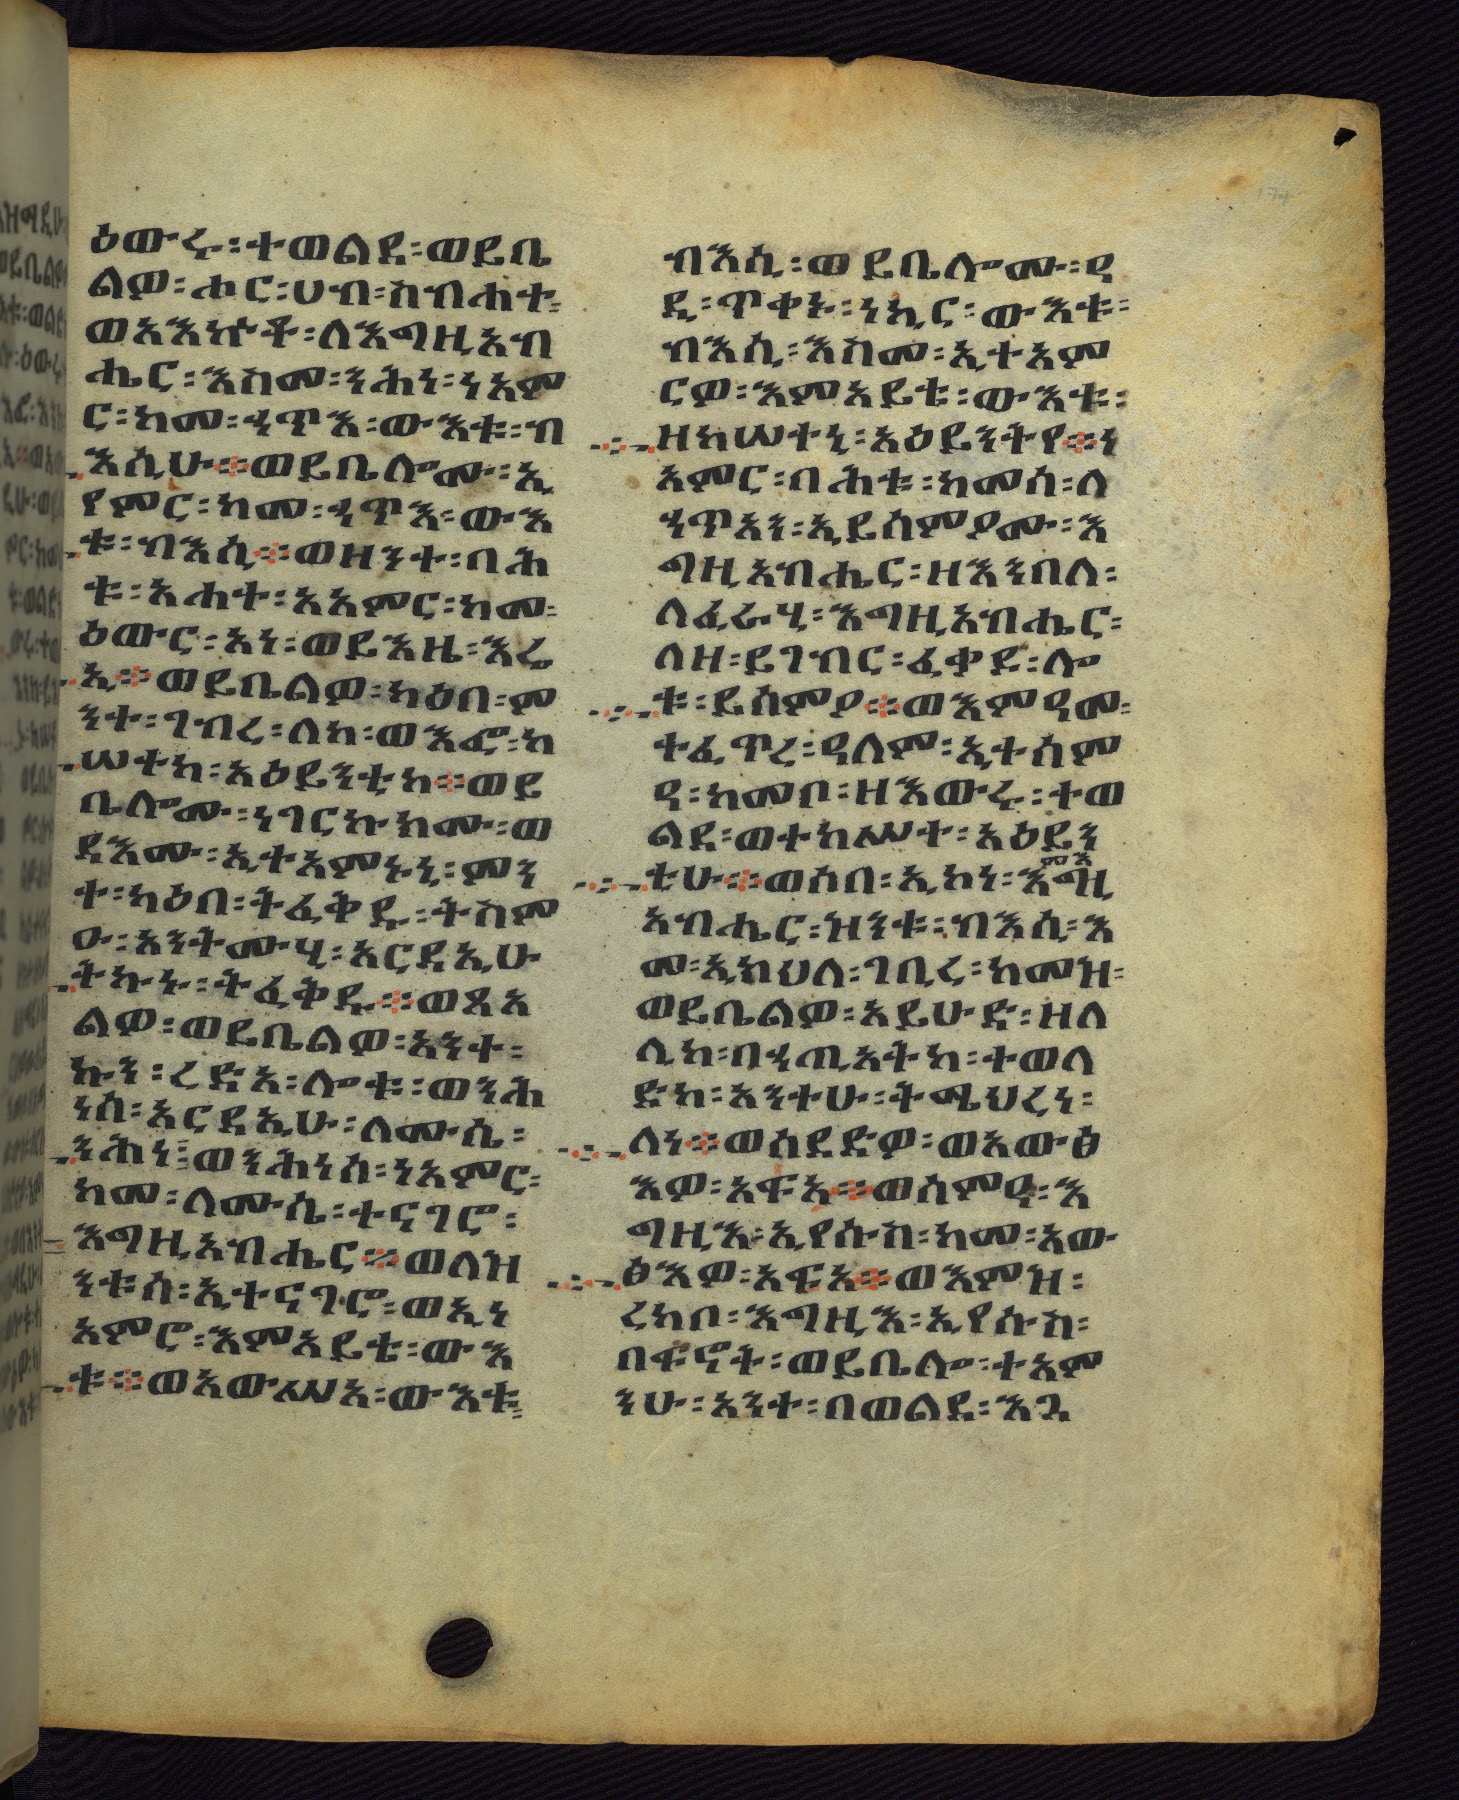 ዕውሩ፡ተወልደ፡ወይቤ
ልዎ፡ሖር፡ሀብ፡ስብሐተ፡
ወአእኵቶ፡ለእግዚአብ
ሔር፡እስመ፡ንሕነ፡ነአም
ር፡ከመ፡ኃጥእ፡ውእቱ፡ብ
እሲሁ፨ወይቤሎሙ፡ኢ
የምር፡ከመ፡ኃጥእ፡ውእ
ቱ፡ብእሲ፨ወዘንተ፡ባሕ
ቱ፡አሐተ፡አአምር፡ከመ፡
ዕውር፡አነ፡ወይእዜ፡እሬ
ኢ፨ወይቤልዎ፡ካዕበ፡ም
ንተ፡ገብረ፡ለከ፡ወእፎ፡ከ
ሠተከ፡አዕይንቲከ፨ወይ
ቤሎሙ፡ነገርኩክሙ፡ወ
ደእሙ፡ኢተአምኑኒ፡ምን
ተ፡ካዕበ፡ትፈቅዱ፡ትስም
ዑ፡አንትሙሂ፡አርዳኢሁ
ትኩኑ፡ትፈቅዱ፨ወጸአ
ልዎ፡ወይቤልዎ፡አንተ፡
ኩን፡ረድአ፡ሎቱ፡ወንሕ
ነሰ፡አርዳኢሁ፡ለሙሴ፡
ንሕነ፡ወንሕነሰ፡ነአምር፡
ከመ፡ለሙሴ፡ተናገሮ፡
እግዚአብሔር፨ወለዝ
ንቱሰ፡ኢተናገሮ፡ወኢን
አምሮ፡እምአይቴ፡ውእ
ቱ፨ወአውሥአ፡ውእቱ፡
ብእሲ፡ወይቤሎሙ፡ዓ
ዲ፡ጥቀኑ፡ነኪር፡ውእቱ፡
ብእሲ፡እስመ፡ኢተአም
ርዎ፡እምአይቴ፡ውእቱ፡
ዘከሠተኒ፡አዕይንትየ፨ን
አምር፡ባሕቱ፡ከመሰ፡ለ
ኃጥአን፡ኢይሰምዖሙ፡እ
ግዚአብሔር፡ዘእንበለ፡
ለፈራሂ፡እግዚአብሔር፡
ለዘ፡ይገብር፡ፈቃደ፡ሎ
ቱ፡ይሰምዖ፨ወእምዓመ፡
ተፈጥረ፡ዓለም፡ኢተሰም
ዓ፡ከመቦ፡ዘእውሩ፡ተወ
ልደ፡ወተከሥተ፡አዕይን
ቲሁ፨ወሰበ፡ኢኮነ፡እምእግዚ
አብሔር፡ዝንቱ፡ብእሲ፡እ
መ፡ኢክህለ፡ገቢረ፡ከመዝ፡
ወይቤልዎ፡አይሁድ፡ዘለ
ሊከ፡በኃጢአትከ፡ተወለ
ድከ፡አንተሁ፡ትሜህረነ፡
ለነ፨ወሰደድዎ፡ወአውፅ
እዎ፡አፍአ፨ወሰምዓ፡እ
ግዚእ፡ኢየሱስ፡ከመ፡አው
ፅእዎ፡አፍአ፨ወእምዝ፡
ረከቦ፡እግዚእ፡ኢየሱስ፡
በፍኖት፡ወይቤሎ፡ተአም
ንሁ፡አንተ፡በወልደ፡እጓ